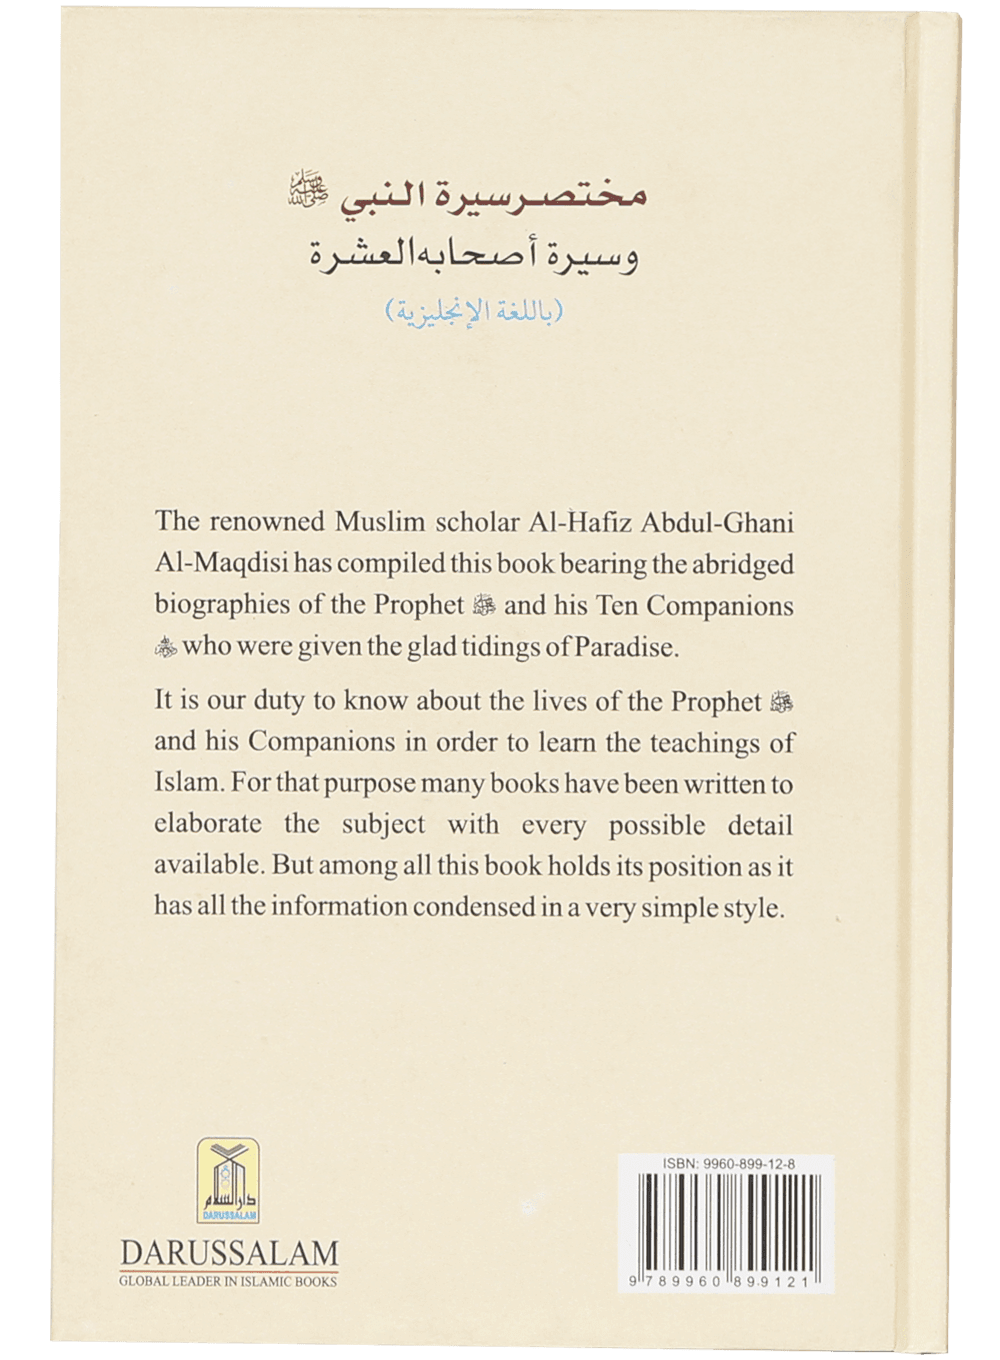 مختصر سيرة النبي ﷺ
وسيرة أصحابه العشرة
(باللغة الإنجليزية)
The renowned Muslim scholar Al-Hafiz Abdul-Ghani
Al-Maqdisi has compiled this book bearing the abridged
biographies of the Prophet ﷺ and his Ten Companions
who were given the glad tidings of Paradise.
It is our duty to know about the lives of the Prophet ﷺ
and his Companions in order to learn the teachings of
Islam. For that purpose many books have been written to
elaborate the subject with every possible detail
available. But among all this book holds its position as it
has all the information condensed in a very simple style.
دار السلام
DARUSSALAM
DARUSSALAM
GLOBAL LEADER IN ISLAMIC BOOKS
ISBN: 9960-899-12-8
9 789960 899121